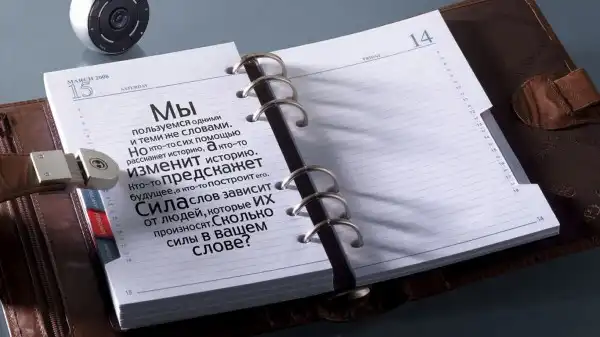 MARCH 2008
15
SATURDAY
Мы
пользуемся одними
и теми же словами.
Но кто-то с их помощью
расскажет историю, а кто-то
изменит историю.
Кто-то предскажет
будущее, а кто-то построит его.
Сила слов зависит
от людей, которые их
произносят. Сколько
силы в вашем
слове?
14
FRIDAY